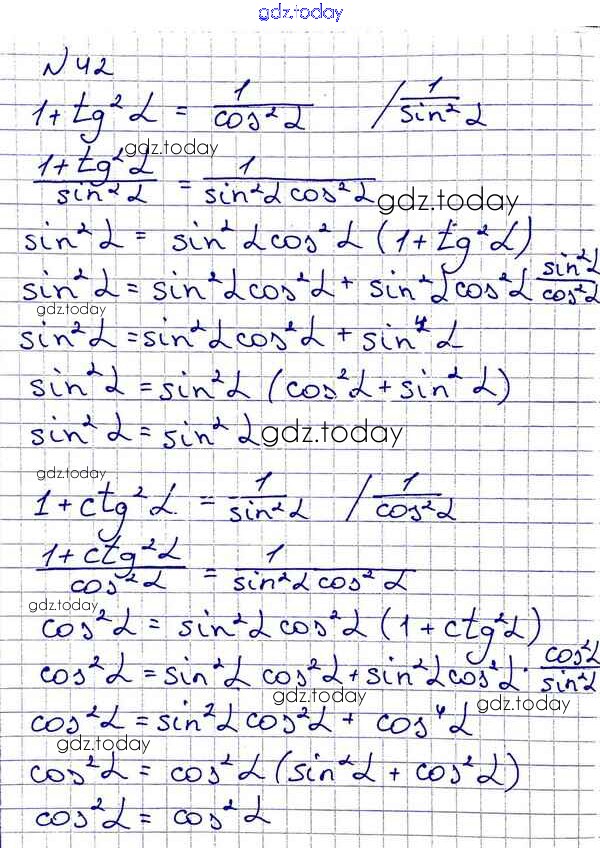 gdz.today
N 42
1+tg²α = 1/cos²α /1/sin²α
gdz.today
(1+tg²α)/sin²α = 1/(sin²α cos²α) gdz.today
sin²α = sin²α cos²α (1+tg²α)
sin²α = sin²α cos²α + sin²α cos²α sin²α/cos²α
gdz.today
sin²α = sin²α cos²α + sin⁴α
sin²α = sin²α (cos²α + sin²α)
sin²α = sin²α gdz.today
gdz.today
1+ctg²α. = 1/sin²α /1/cos²α
(1+ctg²α)/cos²α = 1/(sin²α cos²α)
gdz.today
cos²α = sin²α cos²α (1+ctg²α)
cos²α = sin²α cos²α + sin²α cos²α · cos²α/sin²α
gdz.today gdz.today
cos²α = sin²α cos²α + cos⁴α
gdz.today
cos²α = cos²α (sin²α + cos²α)
cos²α = cos²α